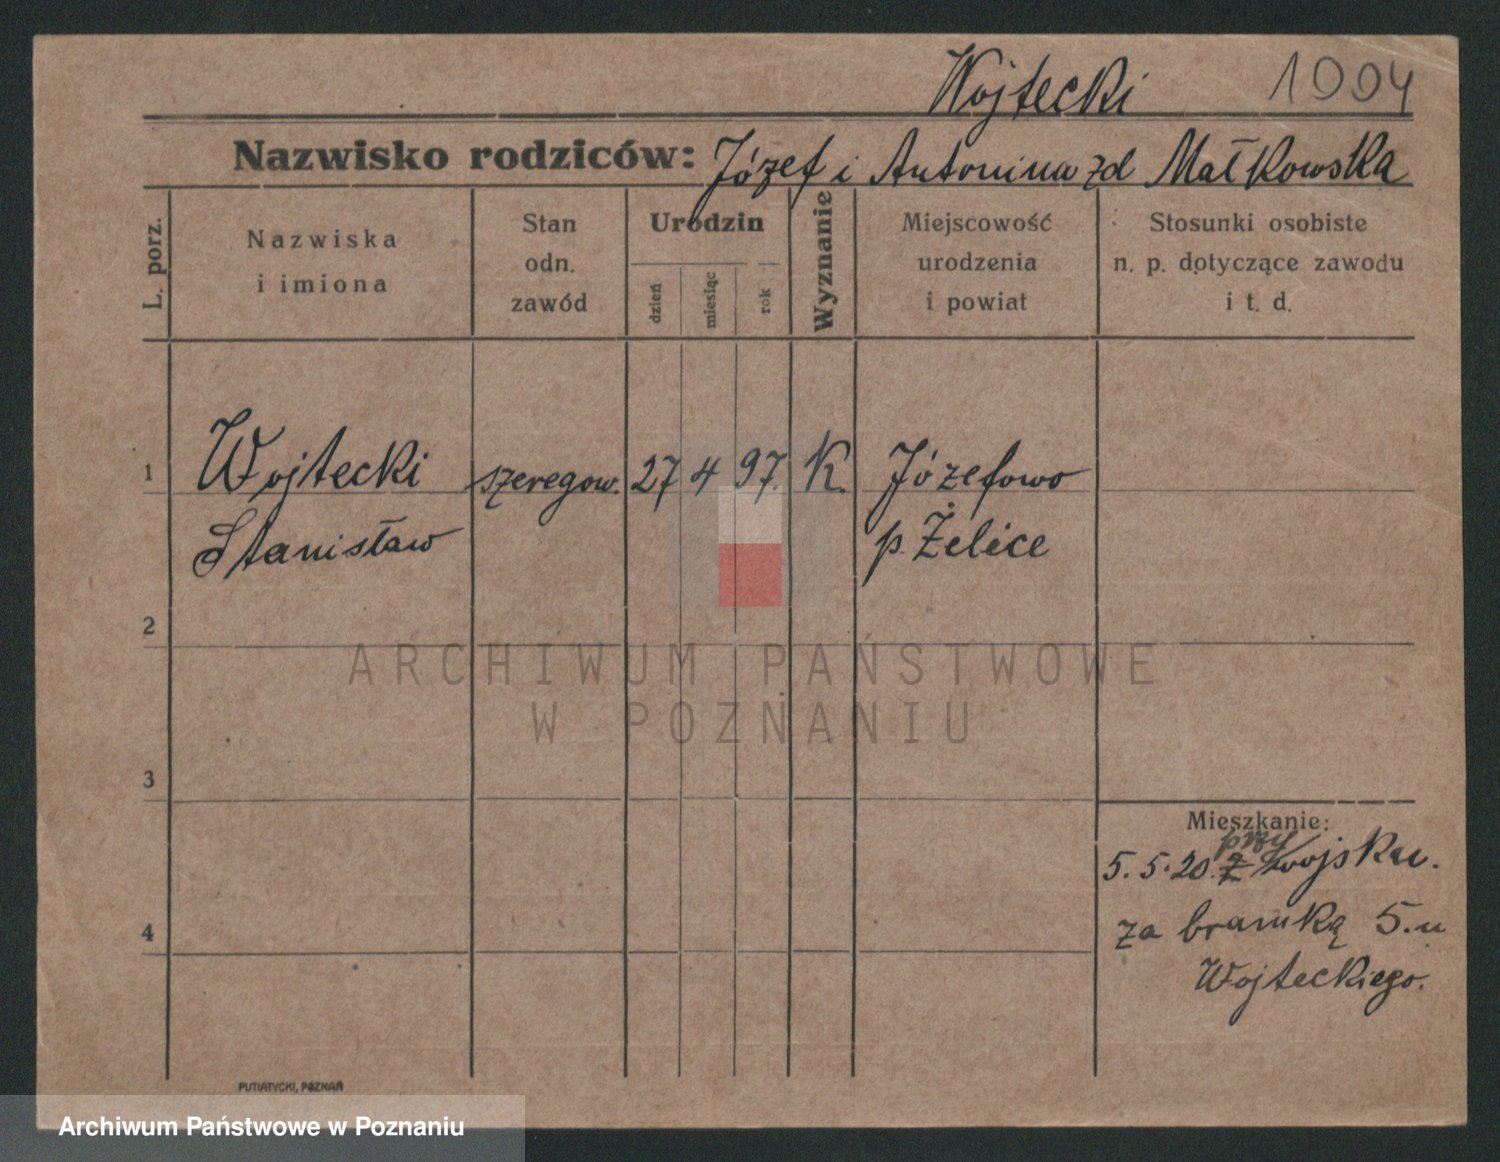 Wojtecki 1004
Nazwisko rodziców: Józef i Antonina zd Małkowska
L. porz.
Nazwiska
i imiona
Stan
odn.
zawód
Urodzin
dzień
miesiąc
rok
Wyznanie
Miejscowość
urodzenia
i powiat
Stosunki osobiste
n. p. dotyczące zawodu
i t. d.
1 Wojtecki szeregow. 27 4 97. K. Józefowo
Stanisław p. Żelice
2
ARCHIWUM PAŃSTWOWE
W POZNANIU
3
Mieszkanie:
przy
5.5.20. Z wojsku.
4
za bramką 5. u
Wojteckiego.
PUTIATYCKI, POZNAŃ
Archiwum Państwowe w Poznaniu